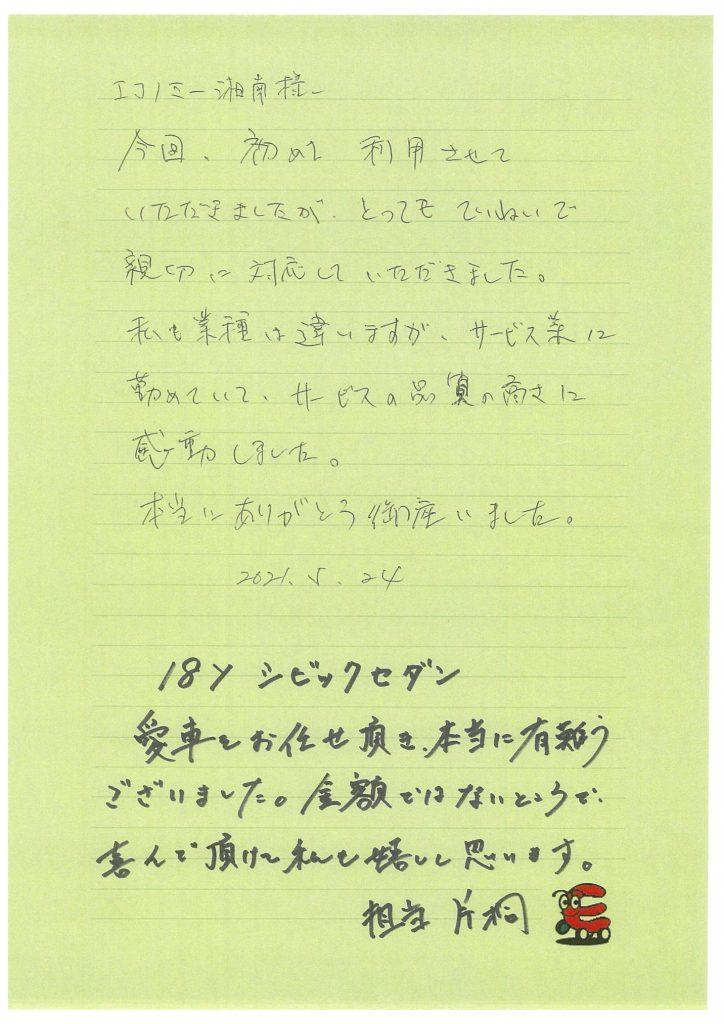 エコノミー湘南様
今回、初めて利用させて
いただきましたが、とってもていねいで
親切に対応していただきました。
私も業種は違いますが、サービス業に
勤めていて、サービスの品質の高さに
感動しました。
本当にありがとう御座いました。
2021.5.24
18Y シビックセダン
愛車をお任せ頂き、本当に有難う
ございました。金額ではないところで、
喜んで頂けて私も嬉しく思います。
担当 片桐